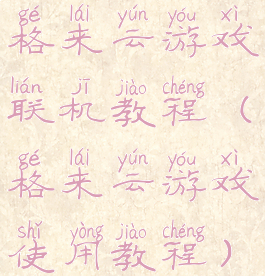 gé lái yún yóu xì
格来云游戏
lián jī jiào chéng
联机教程（
gé lái yún yóu xì
格来云游戏
shǐ yòng jiào chéng
使用教程）